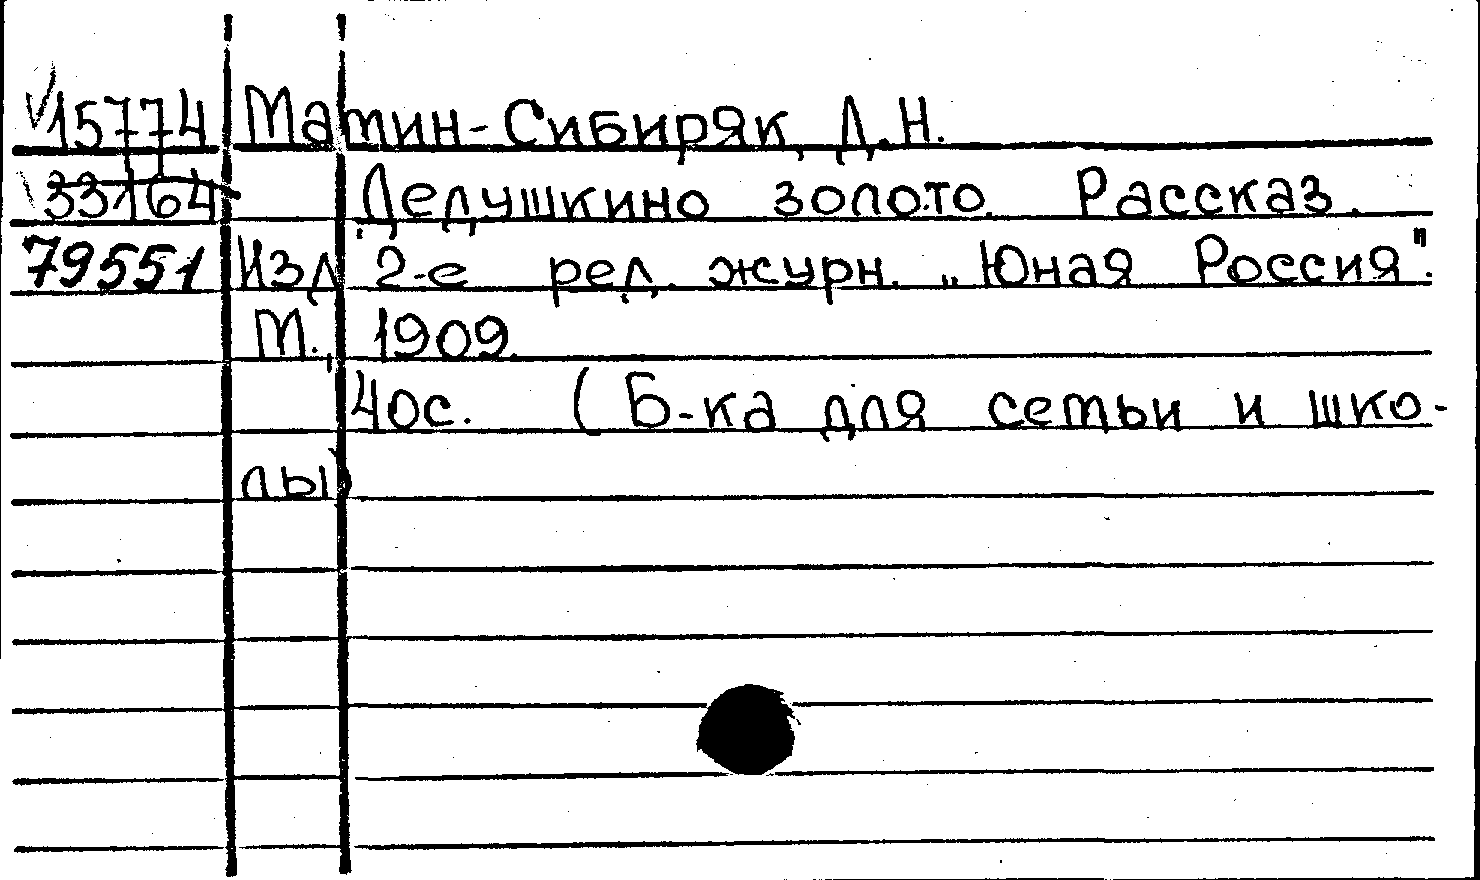 15774 Мамин-Сибиряк, Д.Н.
33164 Дедушкино золото. Рассказ.
79551 Изд 2-е ред. журн. „Юная Россия".
М., 1909.
40с. (Б-ка для сетьи и шко-
лы)